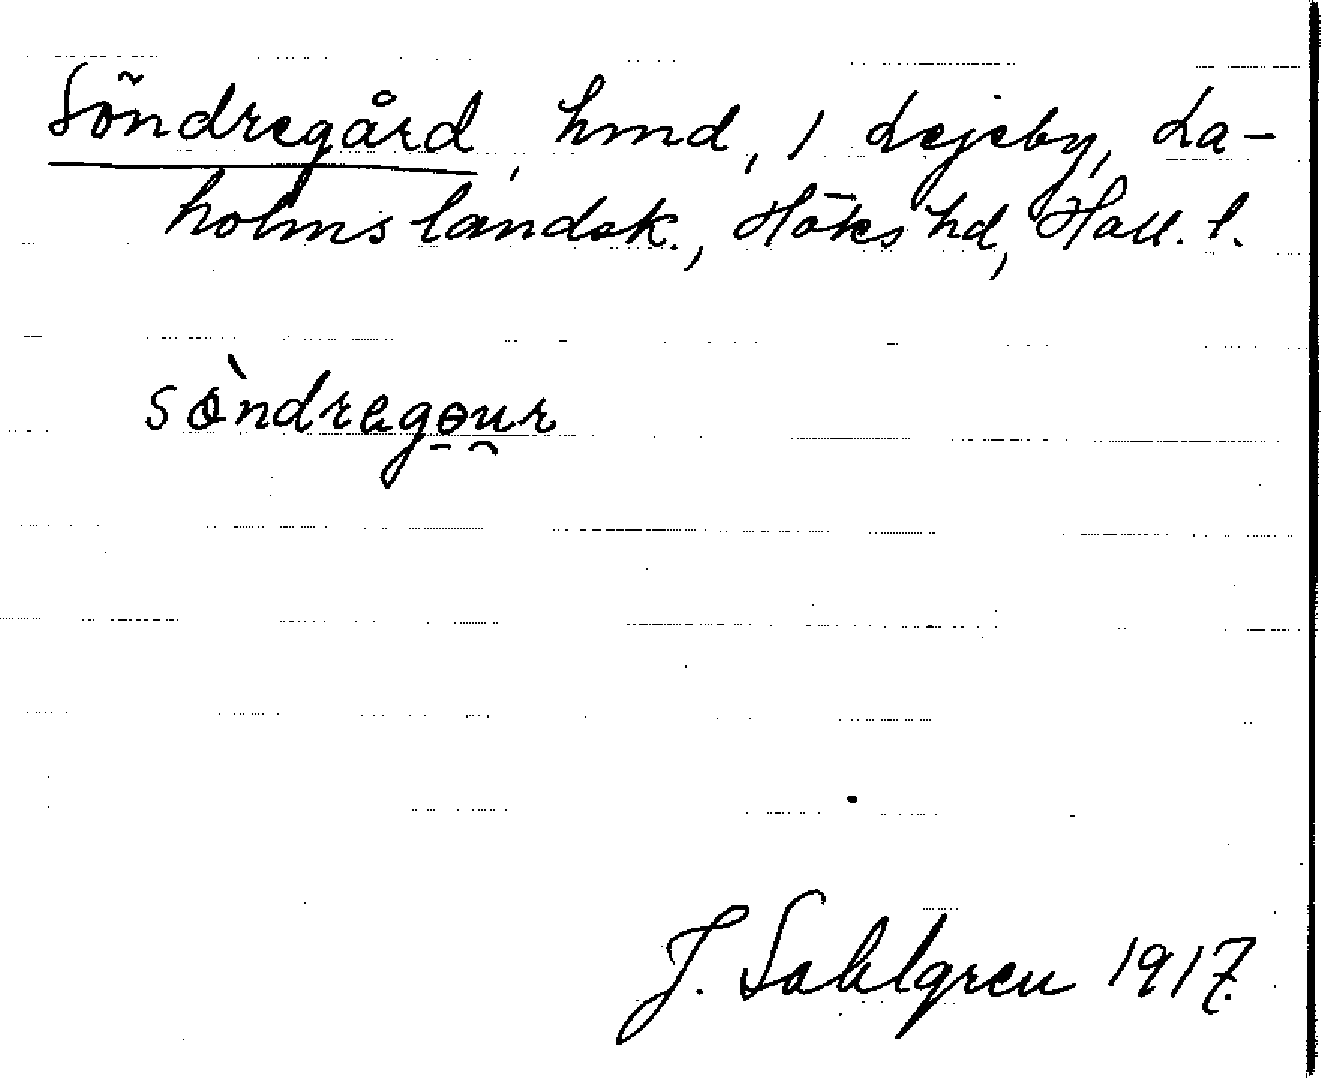 Söndregård, hmd, 1 Lejeby, La-
holms landsk., Höks hd, Hall. l.
sö̀ndregɵu̯r
J. Sahlgren 1917.